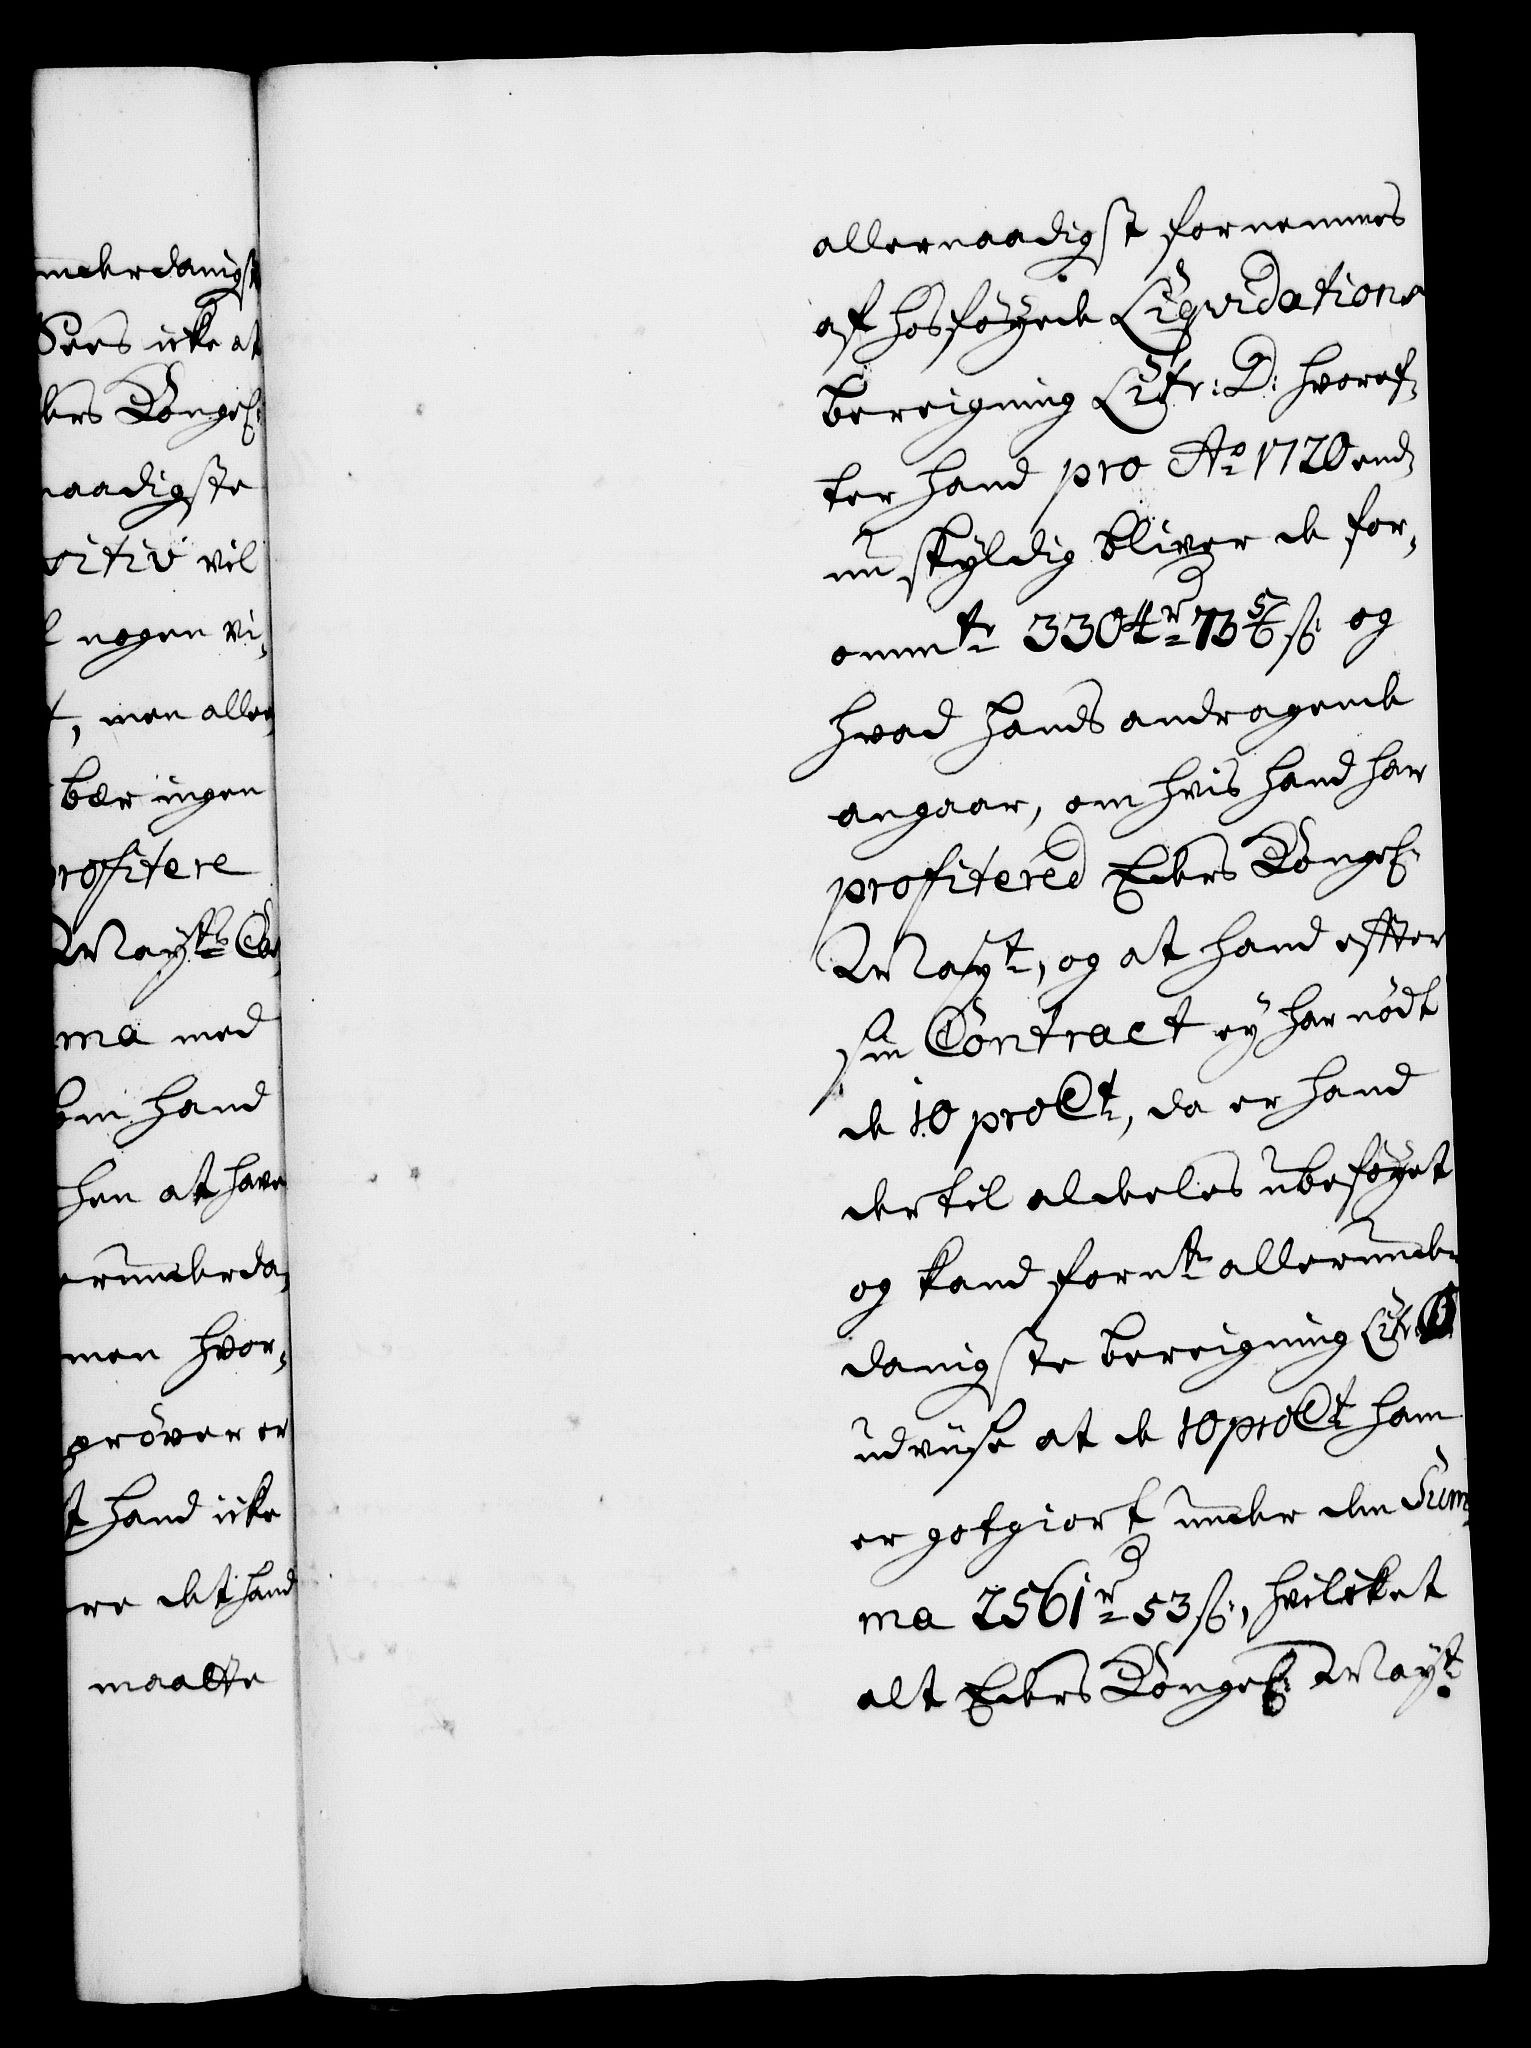 underdanigst
Sees icke at
ders Kongel:
naadigste
sitiv vil
nogen vi-
, men aller
bær ingen
profitere
Mayts Con
ma med
som hand
hen at have
erunderda-
men hvor-
prøver er
t hand icke
re det hand
maatte
allernaadigst fornemmes
af hosføyede Liqvidations
bereigning Litr: D: hvoref-
ter hand pro Ao 1720 end-
nu skyldig bliver de for-
ommte 3304 rd 73 5/6 ß og
hvad hands andragende
angaar, om hvis hand har
profitered Eders Kongel:
Mayt, og at hand effter
sin Contract ey har nødt
de 10 pro Ct, da er hand
dertil aldeeles ubeføyet
og kand fornte allerunder-
danigste bereigning Litr: D
udviise at de 10 pro Ct ham
er gotgiort under den Sum-
ma 2561 rd 53 ß, hvilcket
alt Eders Kongel: Mayt